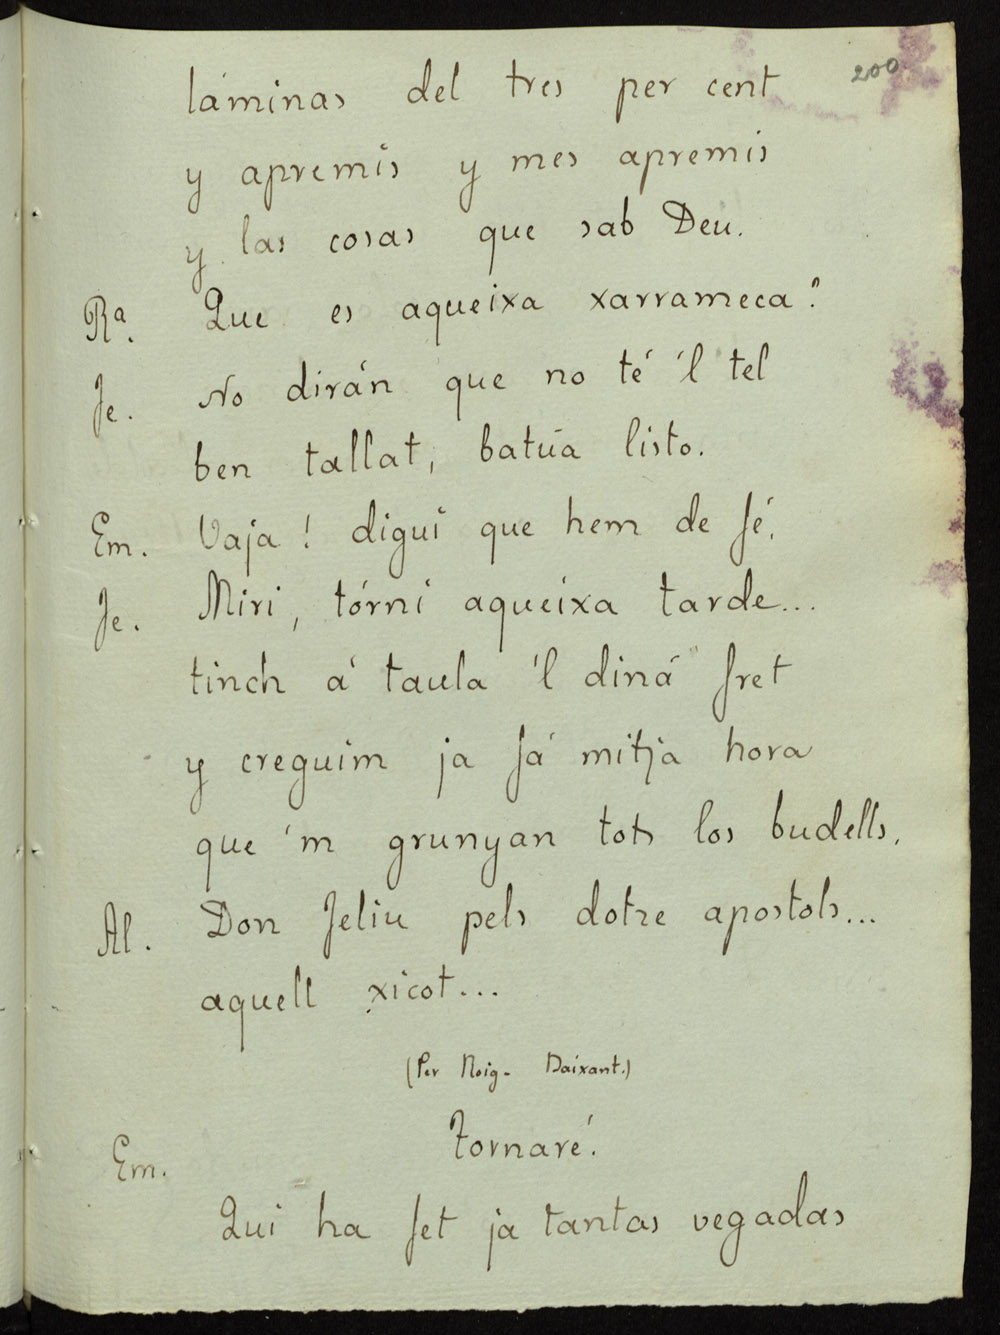 200
láminas del tres per cent
y apremis y mes apremis
y las cosas que sab Deu.
Ra. Que es aqueixa xarrameca?
Je. No dirán que no té 'l tel
ben tallat, batúa listo.
Em. Vaja! digui que hem de fé.
Je. Miri, tórni aqueixa tarde...
tinch á taula 'l diná fret
y creguim ja fá mitja hora
que 'm grunyan tots los budells.
Al. Don Feliu pels dotze apostols...
aquell xicot...
(Per Roig- Daixant.)
Em. Tornaré.
Qui ha fet ja tantas vegadas